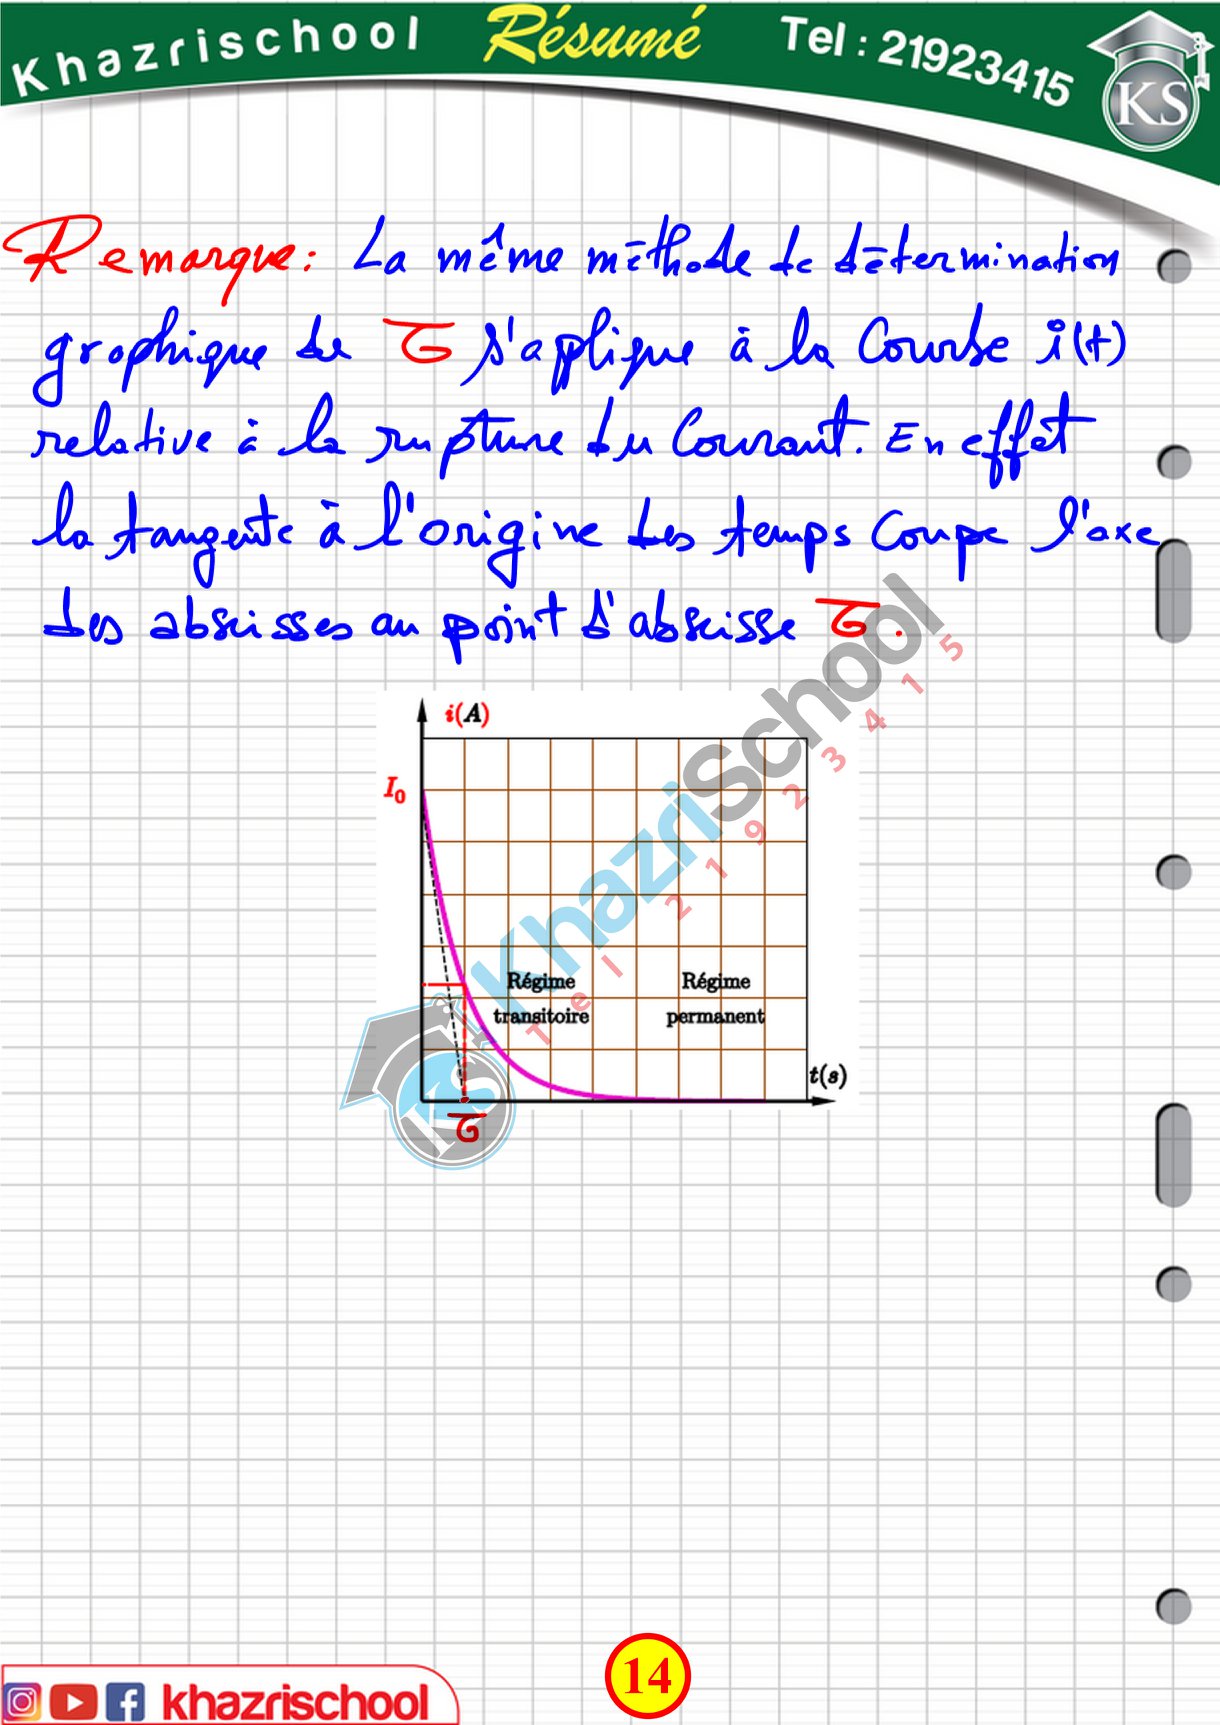 Khazrischool Résumé Tel : 21923415
KS
Remarque: La même méthode de détermination
graphique de τ s'aplique à la Courbe i(t)
relative à la rupture du Courant. En effet
la tangente à l'origine des temps Coupe l'axe
des abscisses au point d'abscisse τ.
i(A)
I0
KhazriSchool
Tel 21923415
Régime Régime
transitoire permanent
t(s)
KS
τ
14
khazrischool